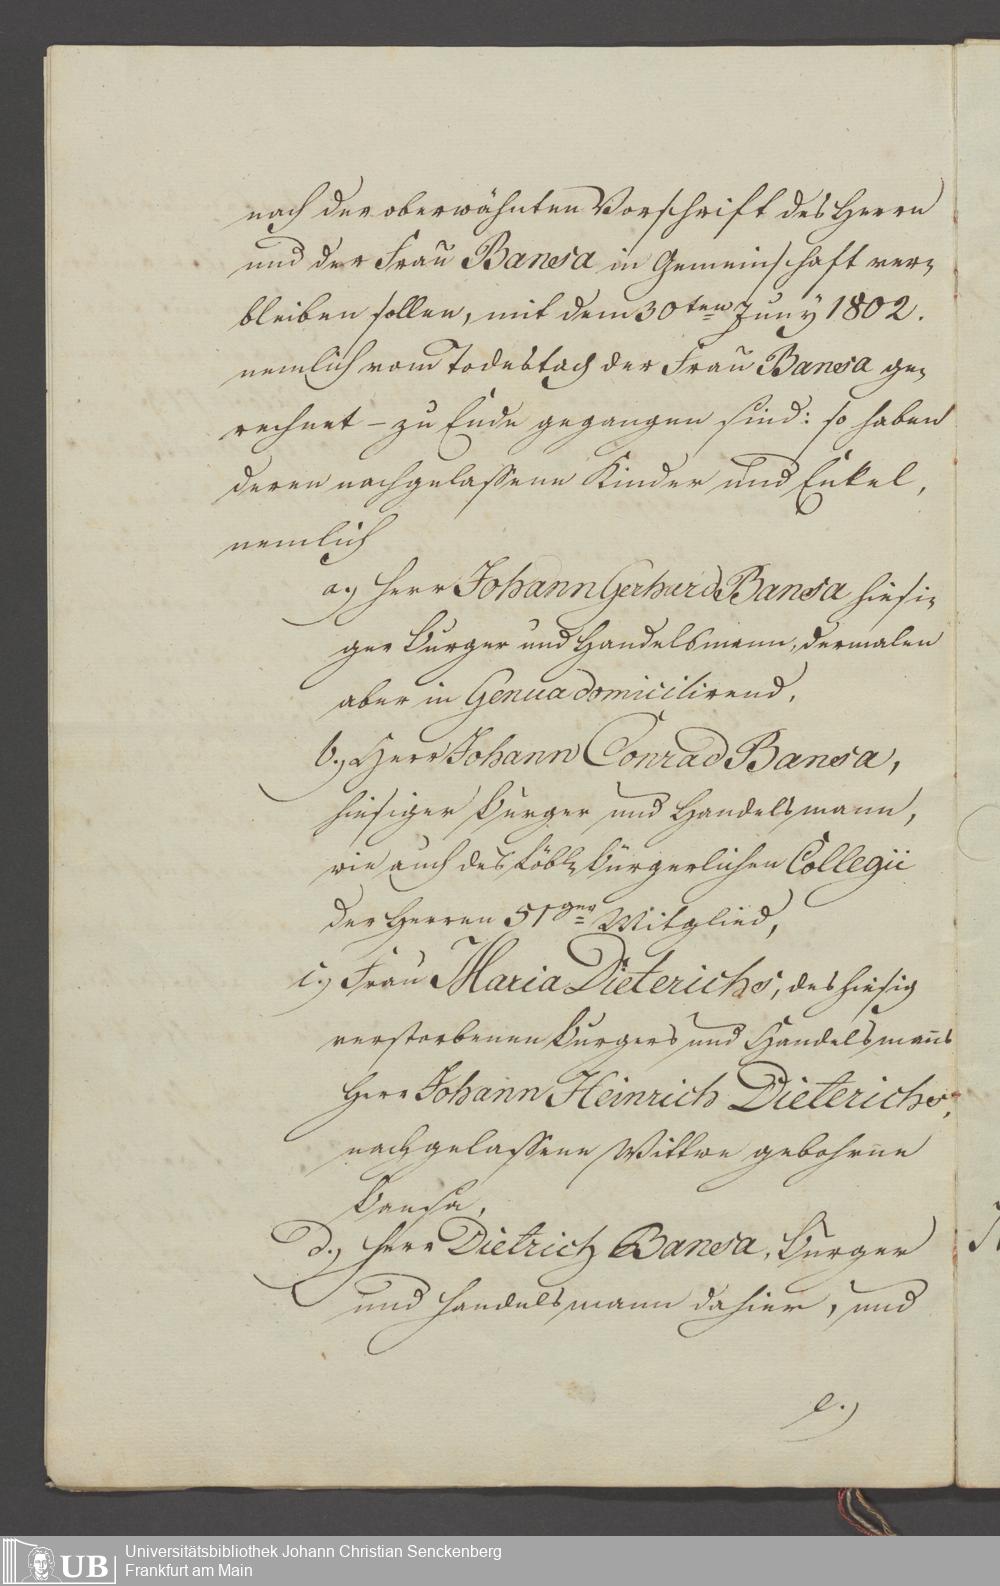 nach der oberwähnten Vorschrift des Herrn
und der Frau Bansa in Gemeinschaft ver-
bleiben sollen, mit dem 30ten Juny 1802.
nemlich vom Todestag der Frau Bansa ge-
rechnet – zu Ende gegangen sind: so haben
deren nachgelassene Kinder und Enkel,
nemlich
a.) Herr Johann Gerhard Bansa hiesi-
ger Burger und Handelsmann, dermalen
aber in Genua domicilirend,
b.) Herr Johann Conrad Bansa,
hiesiger Burger und Handelsmann,
wie auch des Löbl. bürgerlichen Collegii
der Herren 51ger Mitglied,
c.) Frau Maria Dieterichs, des hiesig
verstorbenen Burgers und Handelsmanns
Herr Johann Heinrich Dieterichs,
nachgelassene Wittwe gebohrne
Bansa,
d.) Herr Dietrich Bansa, Burger
und Handelsmann dahier, und
e.)
UB
Universitätsbibliothek Johann Christian Senckenberg
Frankfurt am Main